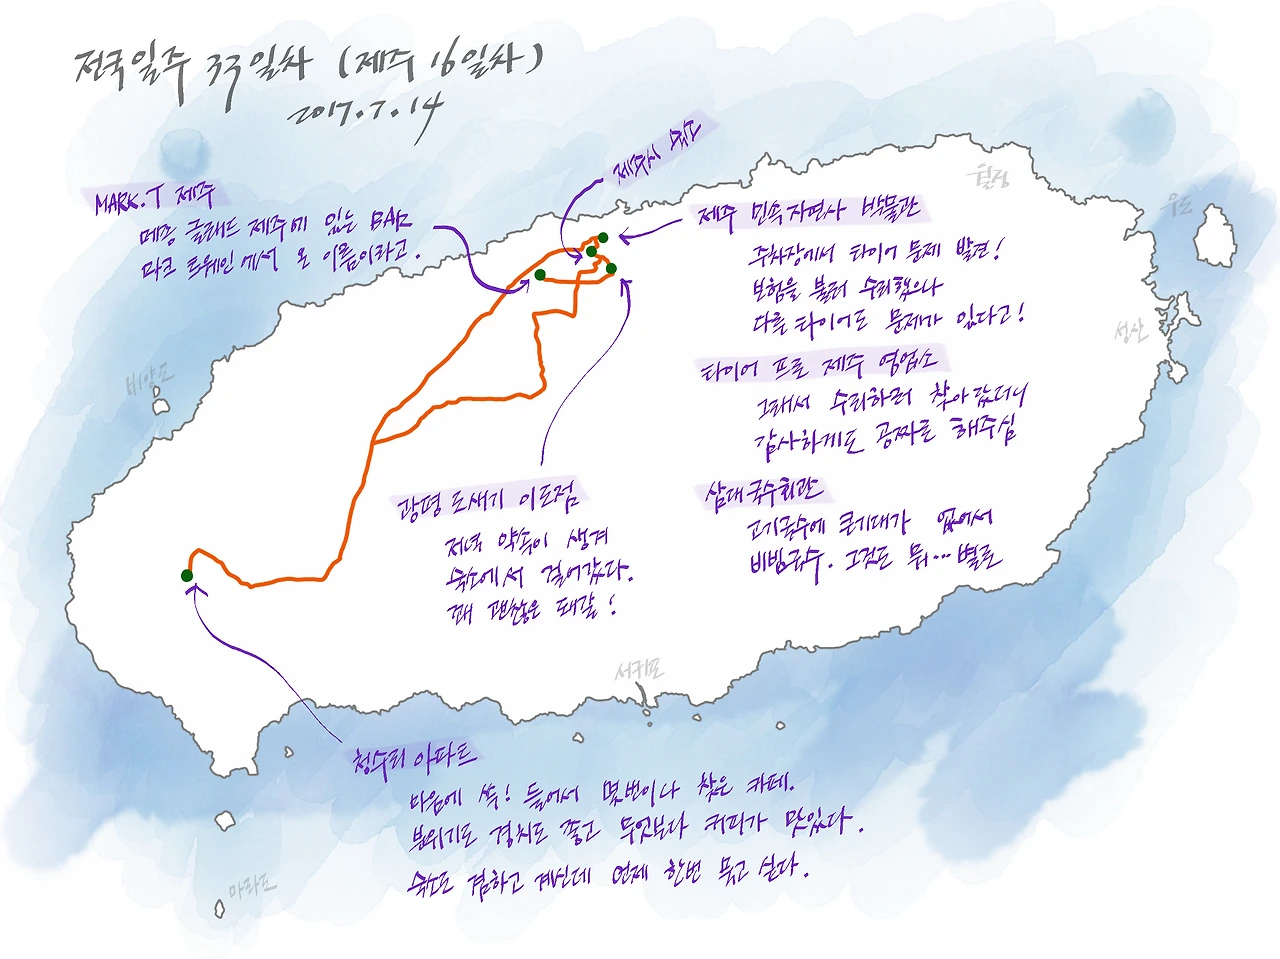 전국일주 33일차 (제주 16일차)
2017.7.14
제주시 숙소
MARK.T 제주
메종 글래드 제주에 있는 BAR
마크 트웨인에서 온 이름이라고.
제주 민속자연사 박물관
주차장에서 타이어 문제 발견!
보험을 불러 수리했으나
다른 타이어도 문제가 있다고!
타이어 프로 제주 영업소
그래서 수리하러 찾아갔더니
감사하게도 공짜로 해주심
삼대국수회관
고기국수에 큰기대가 없어서
비빔국수. 그것도 뭐...별로
광평 도새기 이도점
저녁 약속이 생겨
숙소에서 걸어갔다.
꽤 괜찮은 돼갈!
청수리 아파트
마음에 쏙! 들어서 몇번이나 찾은 카페.
분위기도 경치도 좋고 무엇보다 커피가 맛있다.
숙소도 겸하고 계신데 언제 한번 묵고 싶다.
월정
우도
성산
비양도
서귀포
마라도